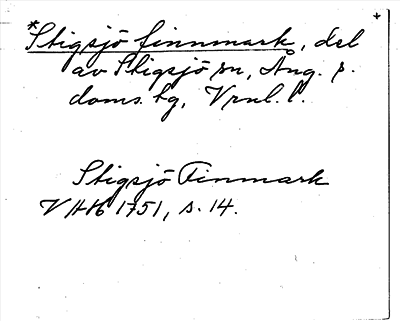 *Stigsjö finnmark, del
av Stigsjö sn, Ång. s.
doms. tg, Vrnl. l.
Stigsjö Finmark
VHH 1751, s. 14.